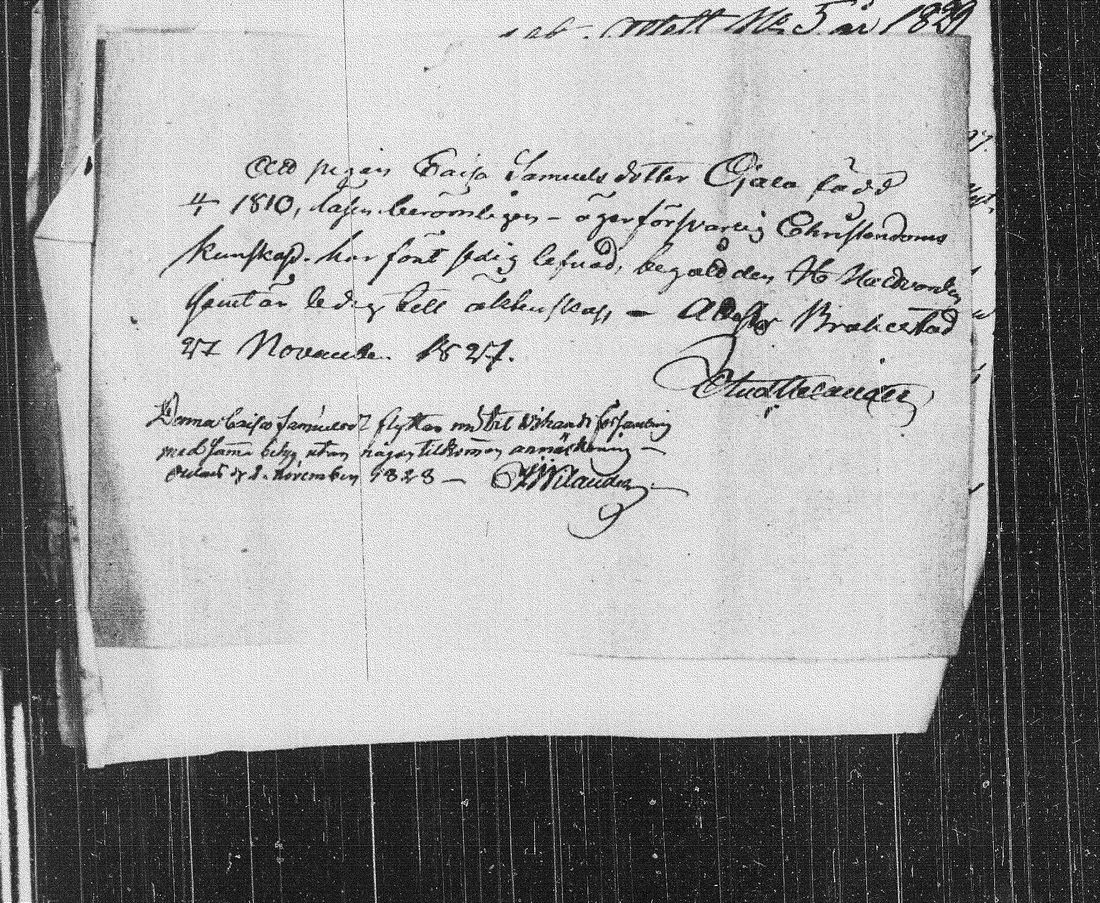 attest No 5 år 1829
Att pigan Caisa Samuels dotter Ojala född
4 1810, läser berömligen – äger försvarlig Christendoms
kunskap. har fört sedig lefnad, begådt den H. Nattvarden
samt är ledig till äktenskap – Attest. Brahestad
27 November 1827.
Denna Caisa Samuelsd flyttar nu til församling
med samma betyg utan någon tilkommen anmärkning –
d 2. november 1828 –